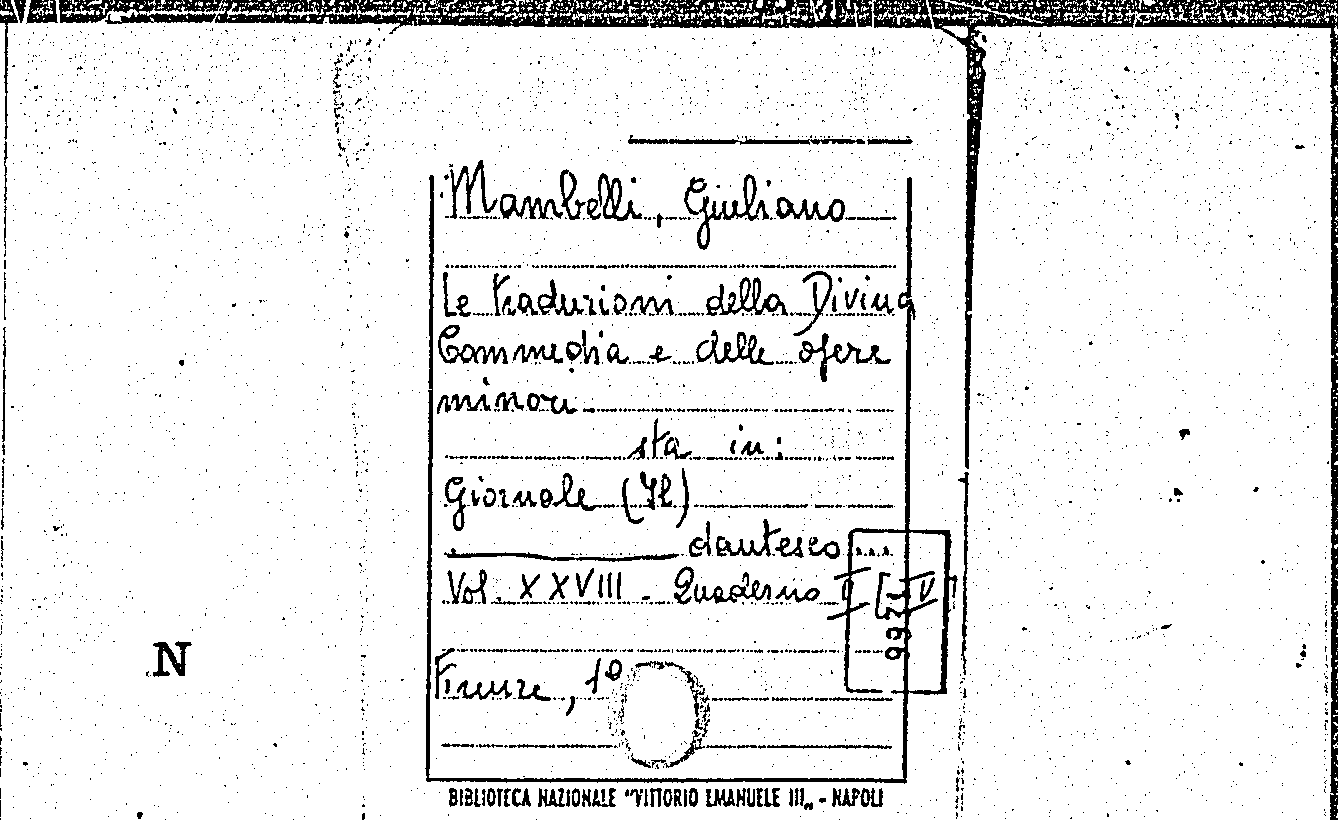 Mambelli, Giuliano
Le traduzioni della Divina
Commedia e delle opere
minori.
sta in:
Giornale (Il)
dantesco ...
Vol. XXVIII - Quaderno
N
Firenze, 19
BIBLIOTECA NAZIONALE "VITTORIO EMANUELE III„ - NAPOLI